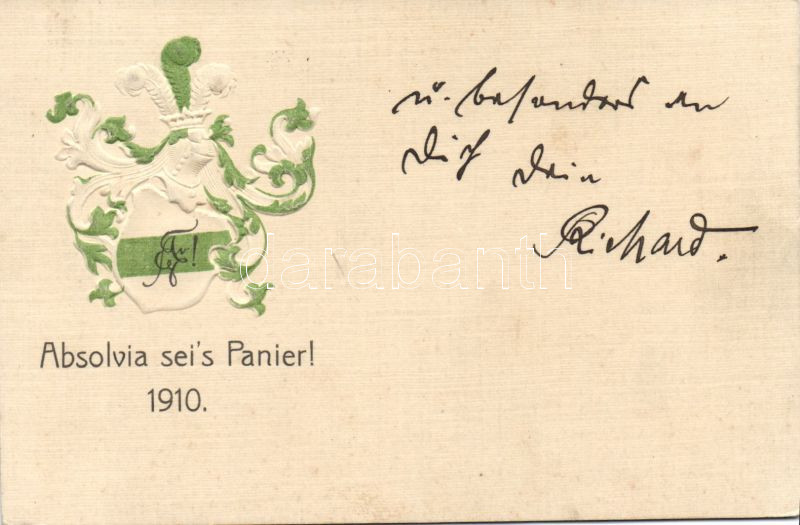 u. besonders an
Dich Dein
Richard.
Absolvia sei's Panier!
1910.
darabanth